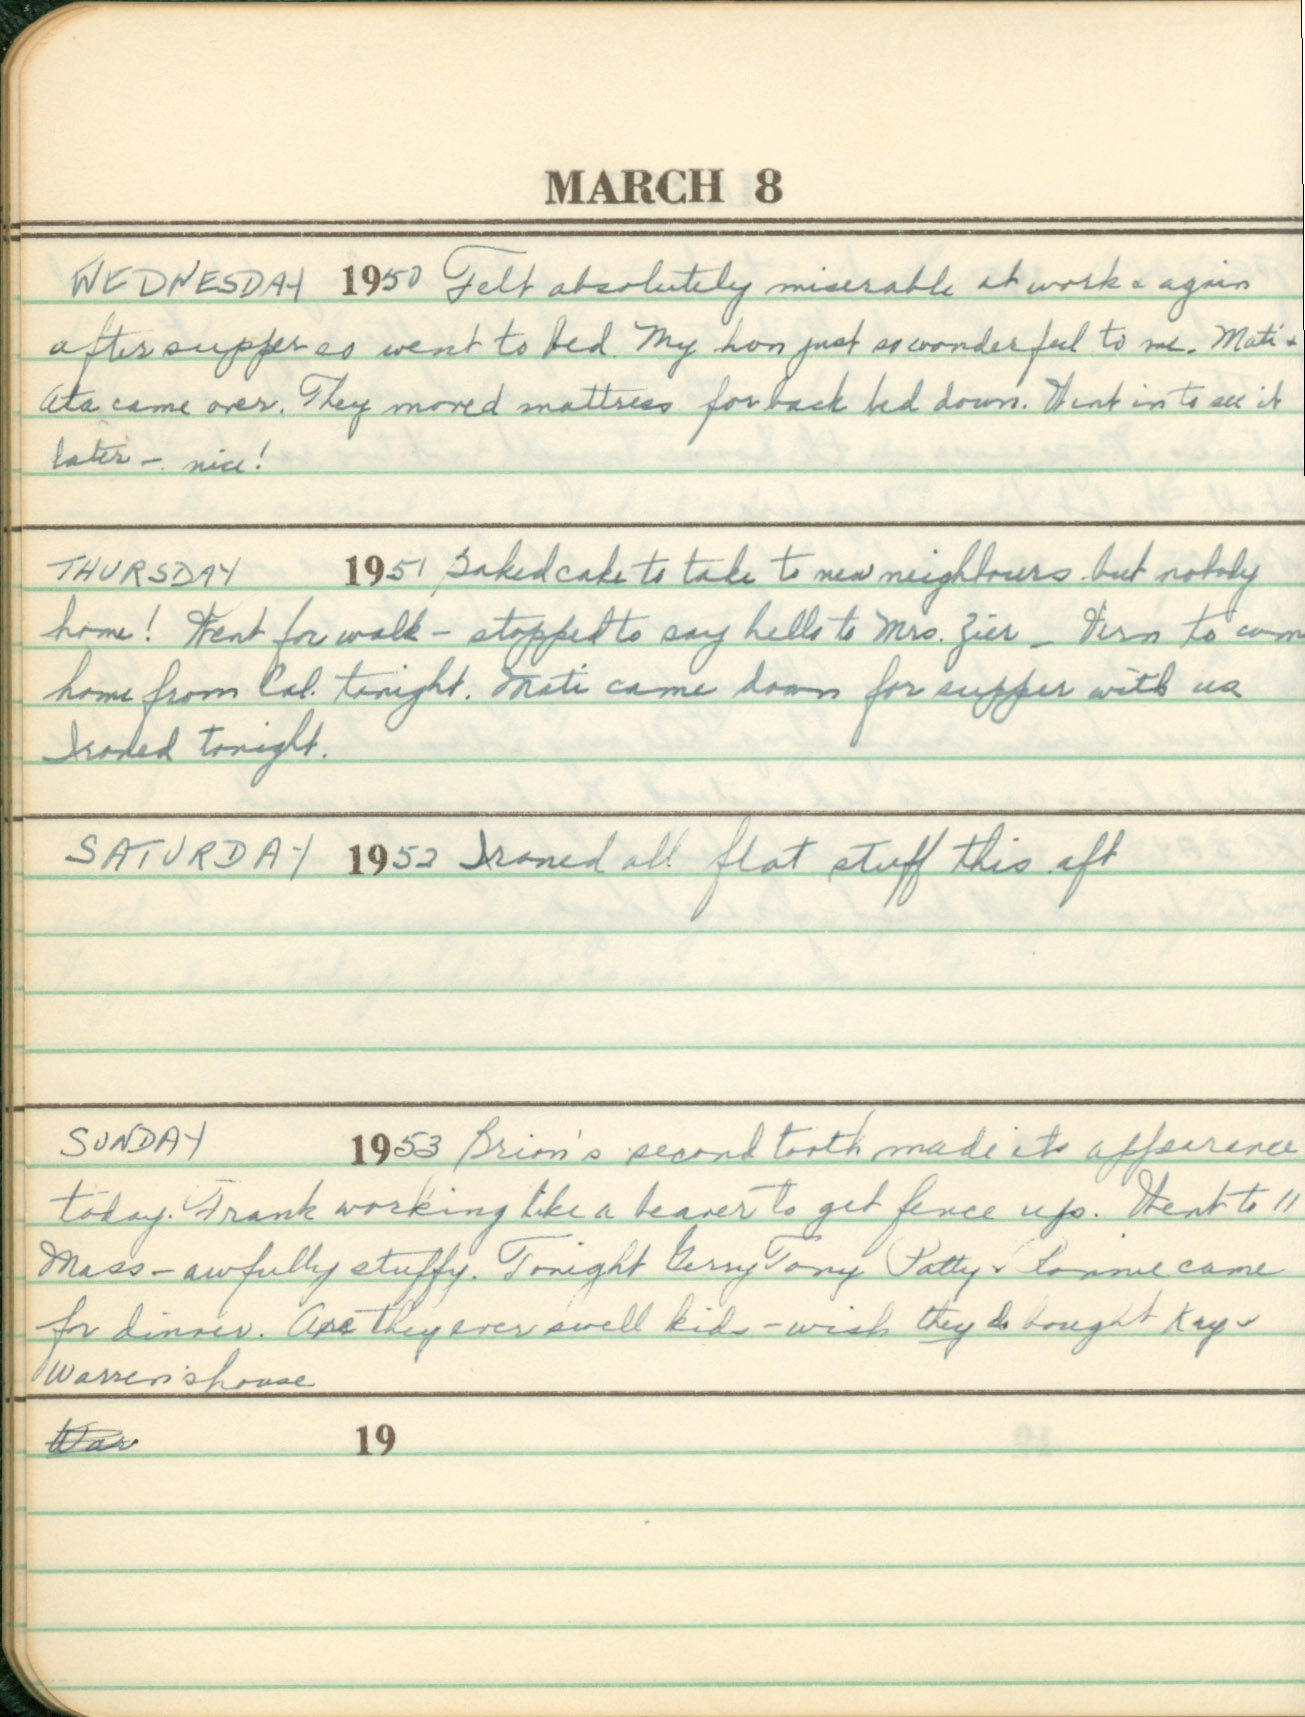 MARCH 8
WEDNESDAY 1950 Felt absolutely miserable at work & again
after supper so went to bed. My hon just so wonderful to me. Mati &
Ata came over. They moved mattress for back bed down. Went in to see it
later - nice!
THURSDAY 1951 Baked cake to take to new neighbours but nobody
home! Went for walk - stopped to say hello to Mrs. Zier - Vern to come
home from Cal. tonight. Mati came down for supper with us
Ironed tonight.
SATURDAY 1952 Ironed all flat stuff this aft
SUNDAY 1953 Brian's second tooth made its appearance
today. Frank working like a beaver to get fence up. Went to 11
Mass - awfully stuffy. Tonight Gerry Tony Patty & Lonnie came
for dinner. Are they ever swell kids - wish they'd bought Kay &
Warren's house
War 19